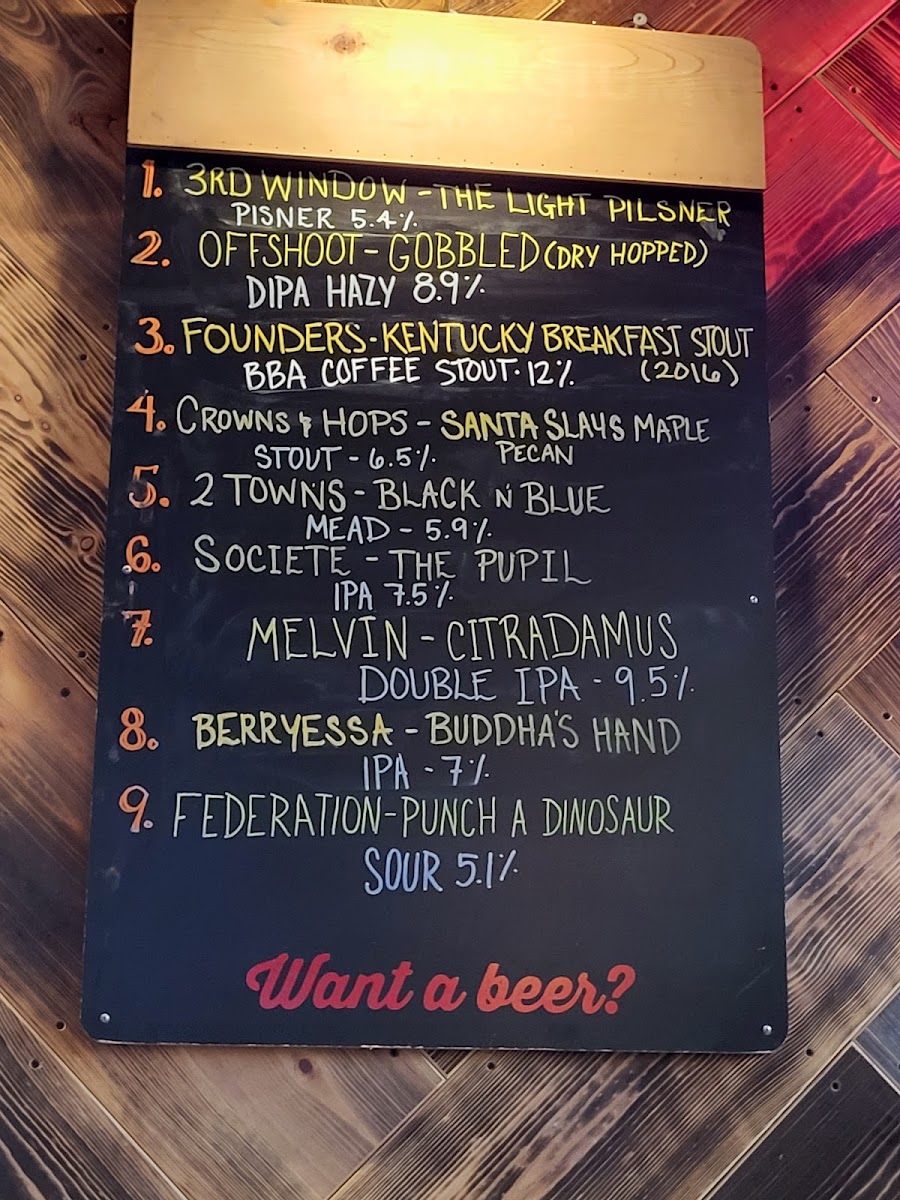 1. 3RD WINDOW - THE LIGHT PILSNER
PISNER 5.4%
2. OFFSHOOT - GOBBLED (DRY HOPPED)
DIPA HAZY 8.9%
3. FOUNDERS - KENTUCKY BREAKFAST STOUT
BBA COFFEE STOUT · 12% (2016)
4. CROWNS & HOPS - SANTA SLAYS MAPLE
STOUT - 6.5% PECAN
5. 2 TOWNS - BLACK N' BLUE
MEAD - 5.9%
6. SOCIETE - THE PUPIL
IPA 7.5%
7. MELVIN - CITRADAMUS
DOUBLE IPA - 9.5%
8. BERRYESSA - BUDDHA'S HAND
IPA - 7%
9. FEDERATION - PUNCH A DINOSAUR
SOUR 5.1%
Want a beer?